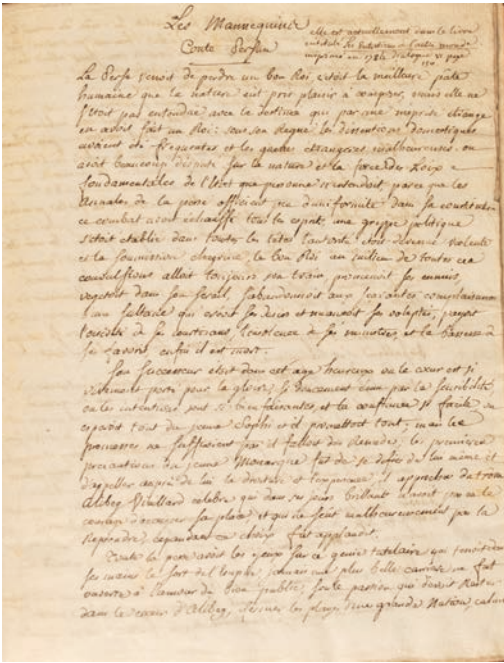 Les Mannequins
Conte Persan
elle est actuellement dans le livre
intitulé les Entretiens de l'autre monde
imprimé en 1784 dialogue VI page
La Perse venoit de perdre un bon Roi, c'étoit la meilleure pate
humaine que la nature eut pris plaisir à composer, mais elle ne
s'étoit pas entendue avec le destin qui par une meprise etrange
en avoit fait un Roi: sous son Regne les dissentions domestiques
avoient été frequentes et les guerres etrangeres malheureuses. on
avoit beaucoup disputé sur la nature et la force des Loix
fondamentales de l'Etat que personne n'entendoit, parce que les
Annales de la perse offroient peu d'uniformité dans sa constitution
ce combat avoit échauffé tous les esprits, une grippe politique
s'étoit etablie dans toutes les têtes l'autorité étoit devenue violente
et la soumission chagrine, le bon Roi au milieu de toutes ces
convulsions alloit toujours son train, promenoit ses ennuis,
vegetoit dans son serail, s'abandonnoit aux
d'une Sultane qui ses desirs et ses voluptés, payoit
de ses courtisans, de ses ministres, et la bassesse de
ses favoris, enfin il est mort.
Son successeur etoit dans cet age heureux ou le cœur est si
vivement porté pour la gloire, si doucement emu par la sensibilité
ou les intentions sont si bienfaisantes, et la confiance si facile, on
esperoit tout du jeune Sophi et il promettoit tout, mais les
promesses ne suffisoient pas il falloit des la premiere
precaution du jeune Monarque fut de se defier de lui même et
d'appeller auprès de lui la droiture et l'experience, il approcha du trone
Alibeg Vieillard celebre qui dans ses jours brillants n'avoit pas eu le
courage d'envisager sa place et qui ne sçut malheureusement pas la
Reprendre, cependant ce choix fut applaudi.
Toute la perse avoit les yeux sur ce genie tutelaire qui tenoit dans
ses mains le sort de l'empire, jamais une plus belle carriere ne fut
ouverte à l'amour du bien public, seule passion qui devoit Rester
dans le cœur d'Alibeg, les playes d'une grande Nation, calmer